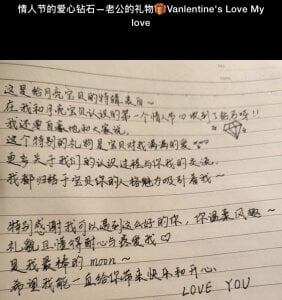 情人节的爱心钻石－老公的礼物🎁Vanlentine's Love My
love
这是给月亮宝贝的特辑表白～
在我和月亮宝贝认识的第一个情人节收到了钻石呀!!
我还要自豪地和大家说，
这个特别的礼物是宝贝对我满满的爱
更多关于我们的认识过程与你我的交流，
我都归结于宝贝你的人格魅力吸引着我～
特别感谢我可以遇到这么好的你，你温柔风趣～
礼貌且懂得耐心与疼爱我♡
是我最棒的moon～
希望我能一直给你带来快乐和开心
LOVE YOU